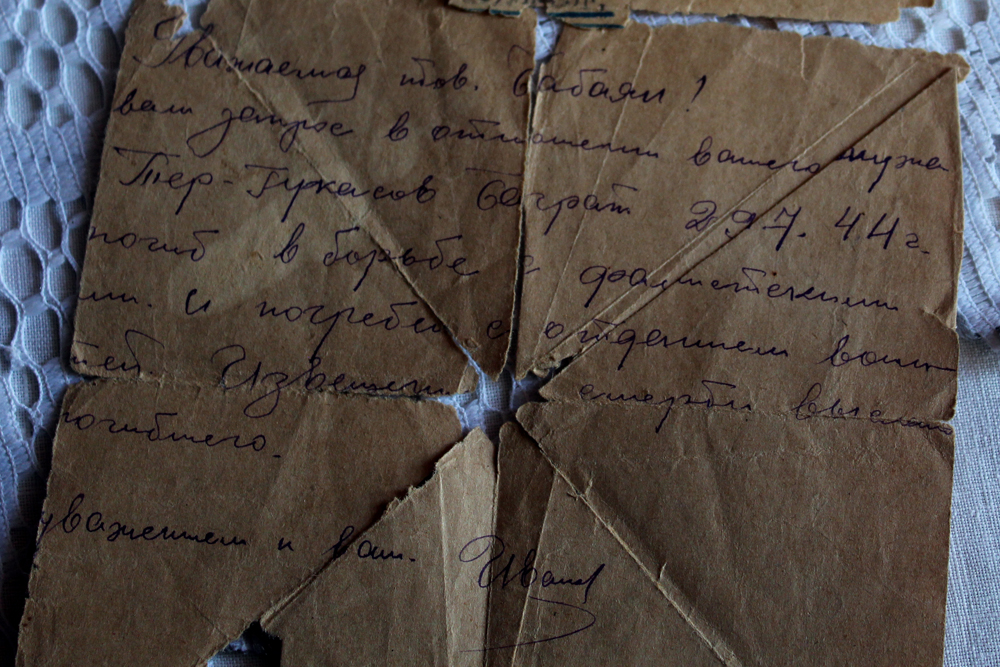 Уважаемая тов. Бабаян!
ваш запрос в отношении вашего мужа
Тер-Гукасов Баграт 29 7. 44 г.
погиб в борьбе с фашистскими
ми. и погребен с отданием воин
ей Извещен смерти выслан
погибшего.
уважением к вам. Иванов